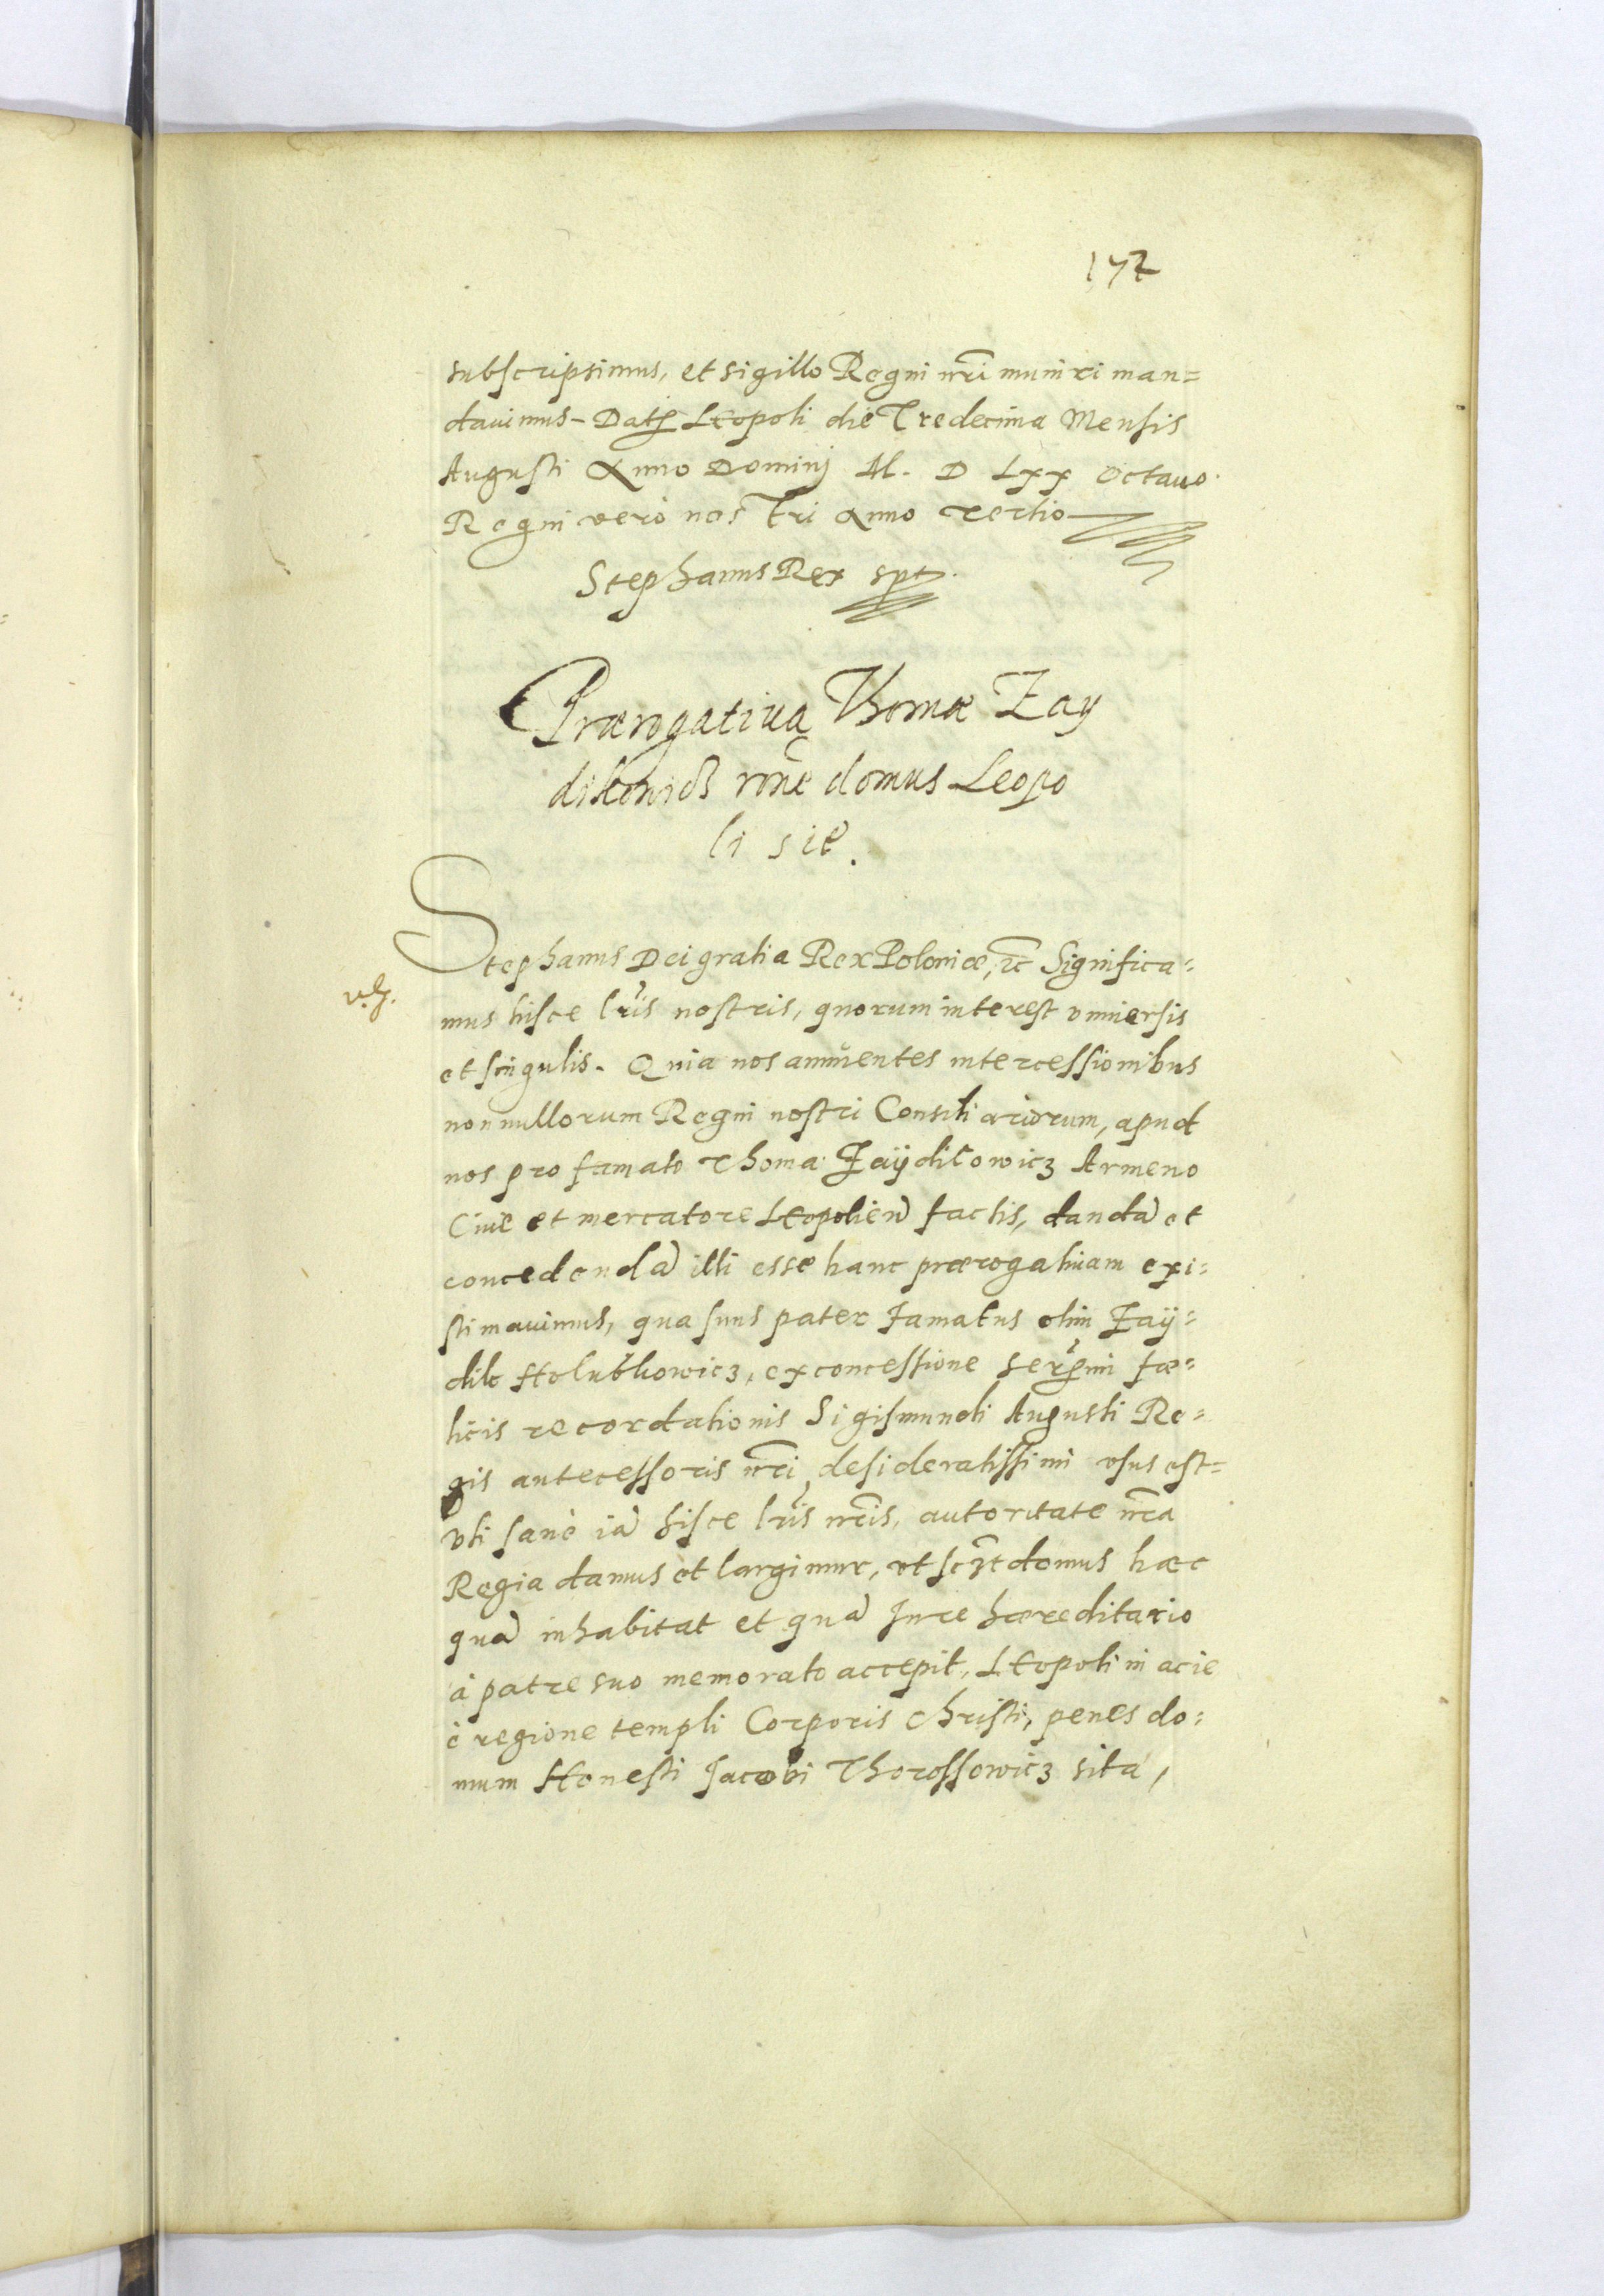 172
subscripsimus, et sigillo Regni nr̄i muniri man=
dauimus - Datꝭ Leopoli die Tredecima Mensis
Augusti Anno Dominj M. D Lxx Octauo.
Regni verò nostri Anno tertio
Stephanus Rex spt.
Prærogatiua Thomæ Zay
dikowicz rōne domus Leopo
li sitē.
Stephanus Dei gratia Rex Poloniæ, ꝛc Significa=
v.g.
mus hisce lr̄is nostris, quorum interest vniuersis
et singulis. Quia nos annuentes intercessionibus
nonnullorum Regni nostri Consiliariorum, apud
nos pro famato Thoma Zaÿdikowicz Armeno
Ciue et mercatore Leopolien̄ factis, dandā et
concedendā illi esse hanc prærogatiuam exi=
stimauimus, qua suus pater famatus olim Zaÿ=
dik Holubkowicz, ex concessione Serꝭmi fæ=
licis recordationis Sigismundi Augusti Re=
gis antecessoris nr̄i desideratissimi vsus est=
vti sanè iā hisce lr̄is nr̄is, autoritate nr̄a
Regia damus et largimur, vt sczt domus hæc
quā inhabitat et quā Jure hæreditario
à patre suo memorato accepit, Leopoli in acie
è regione templi Corporis Christi, penes do=
mum Honesti Jacobi Thorossowicz sita,